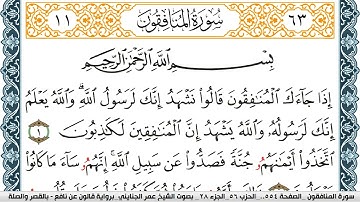 ٦٣ سُورَةُ المُنَافِقُونَ ١١
بِسْمِ اللَّهِ الرَّحْمَٰنِ الرَّحِيمِ
إِذَا جَآءَكَ الْمُنَٰفِقُونَ قَالُوا نَشْهَدُ إِنَّكَ لَرَسُولُ اللَّهِۗ وَاللَّهُ يَعْلَمُ
إِنَّكَ لَرَسُولُهُۥ وَاللَّهُ يَشْهَدُ إِنَّ الْمُنَٰفِقِينَ لَكَٰذِبُونَ ١
اَ۪تَّخَذُوٓا أَيْمَٰنَهُمُۥ جُنَّةً فَصَدُّوا عَن سَبِيلِ اللَّهِۖ إِنَّهُمُۥ سَآءَ مَا كَانُوا
سورة المنافقون _الصفحة ٥٥٤_ الحزب ٥٦_ الجزء ٢٨ _ بصوت الشيخ عمر الجنايني_ برواية قالون عن نافع - بالقصر والصلة